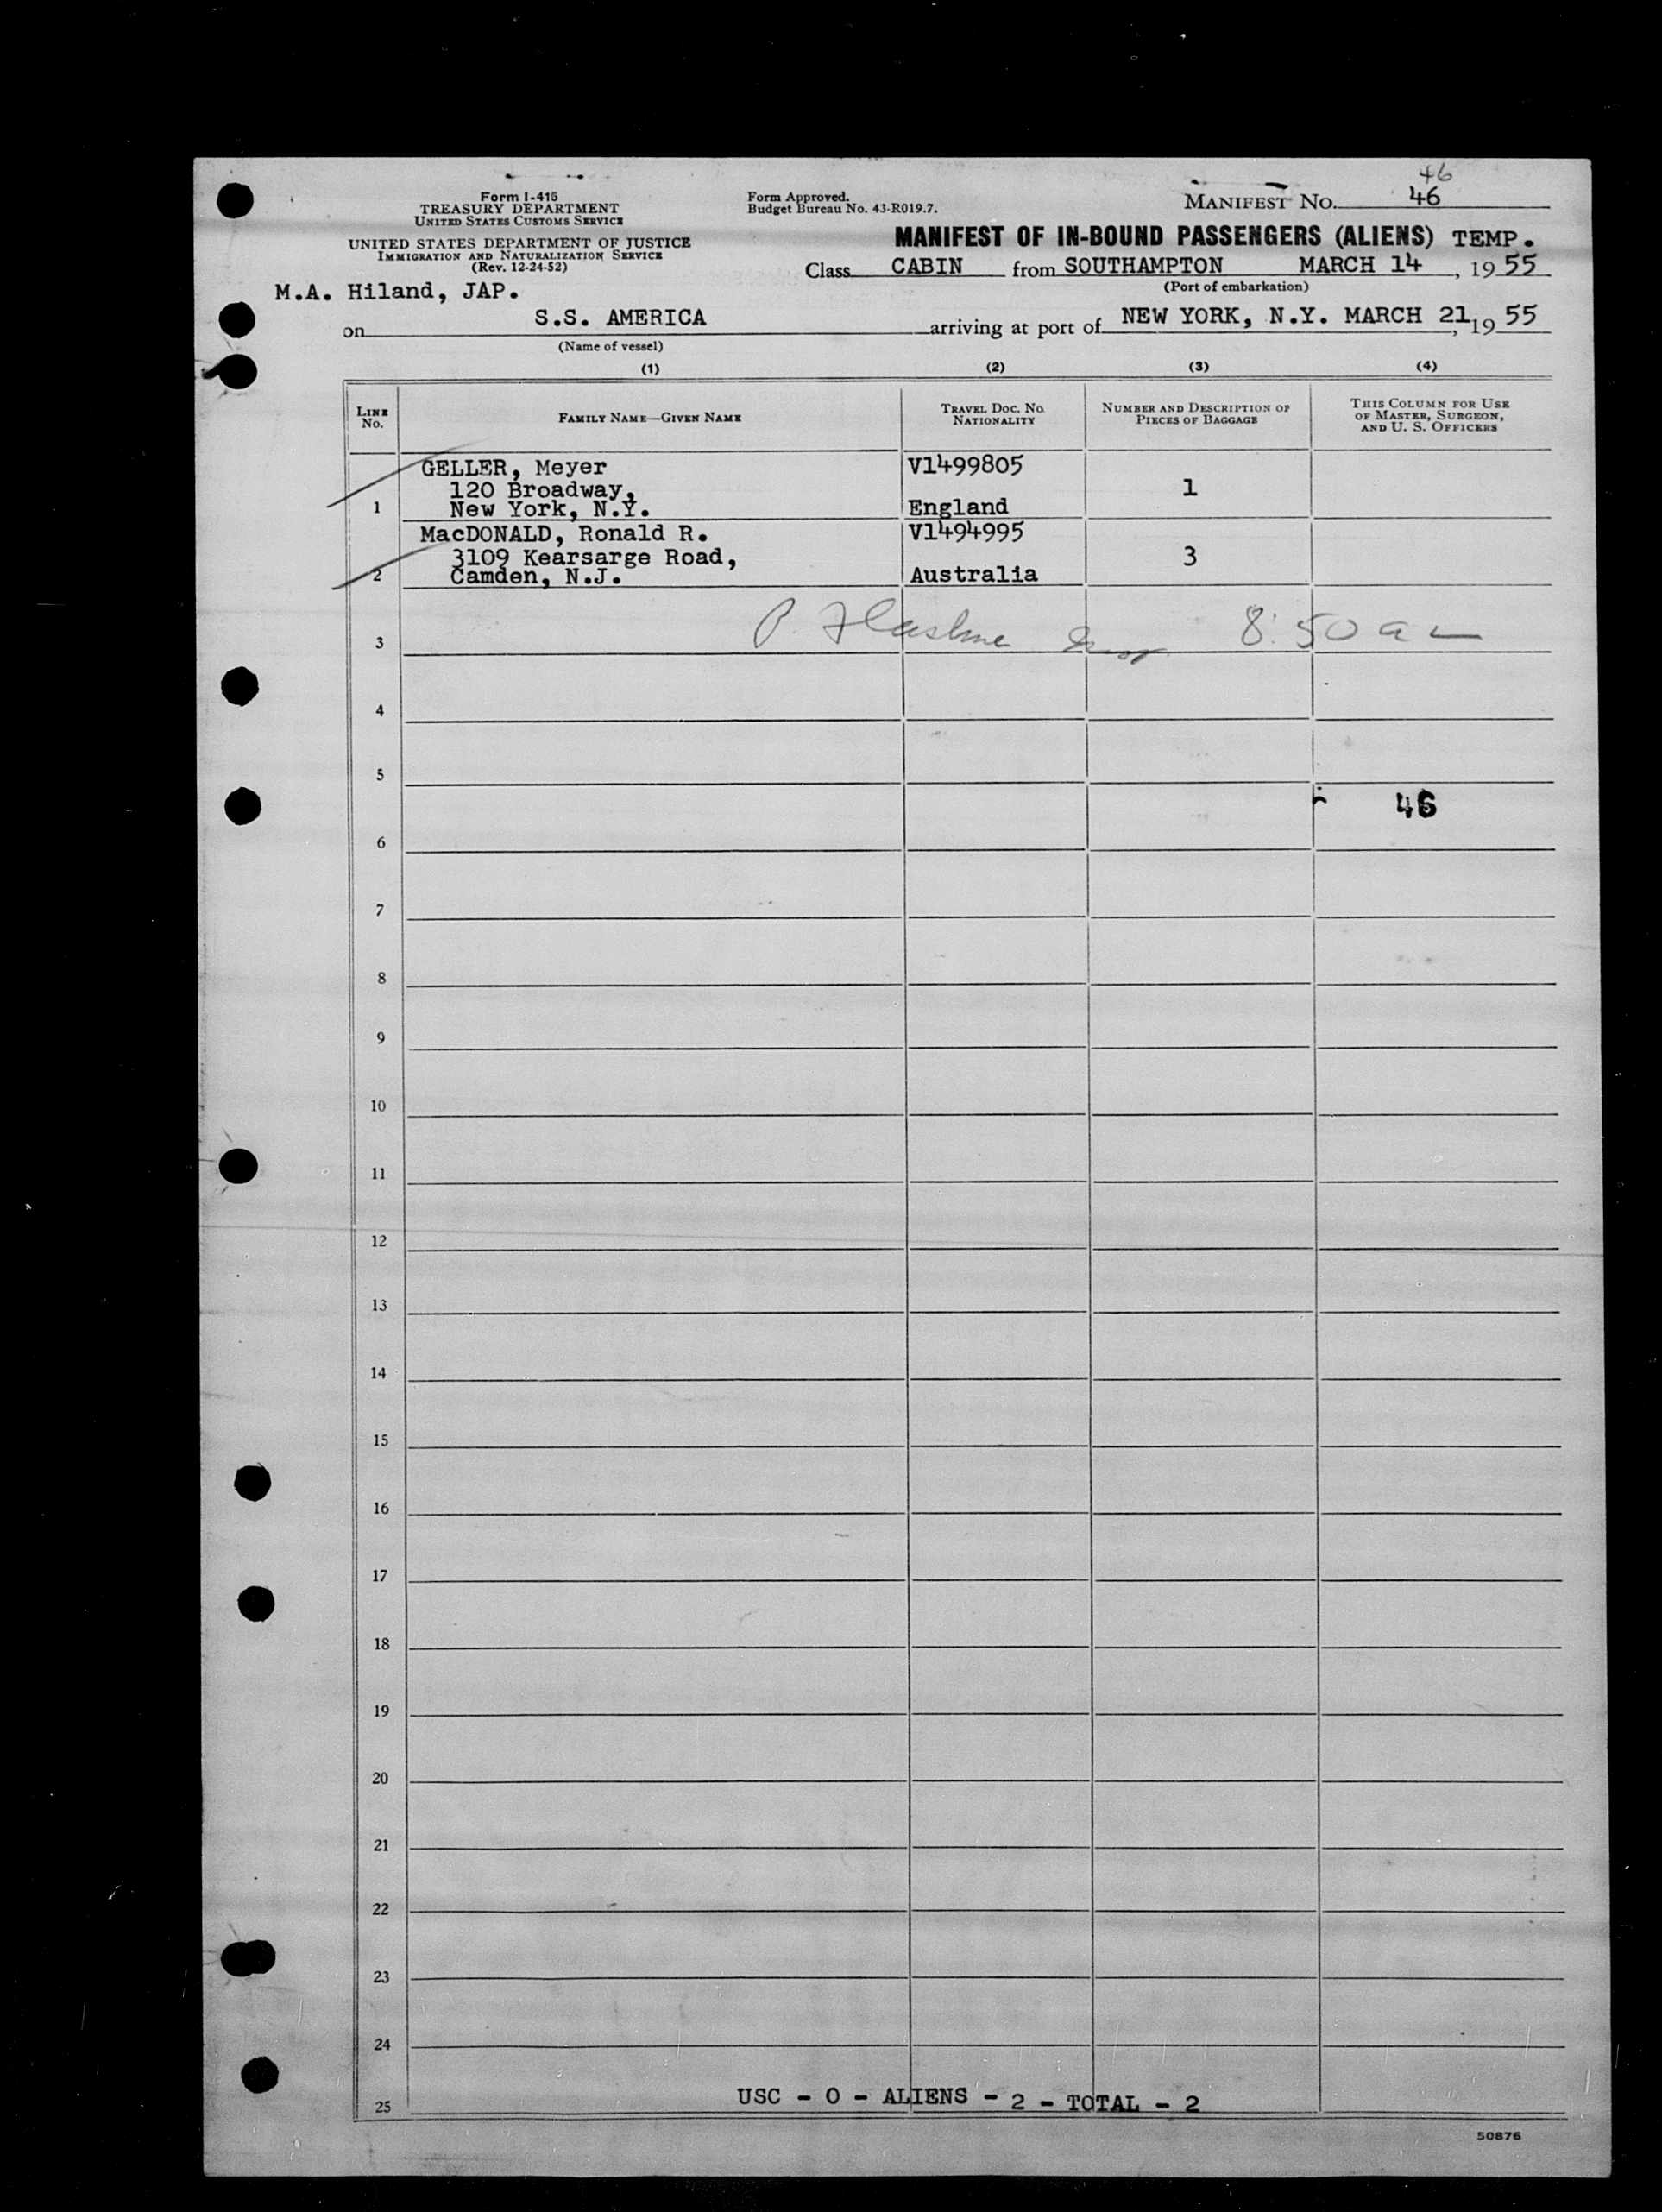 46
Form I-415
TREASURY DEPARTMENT
UNITED STATES CUSTOMS SERVICE
Form Approved.
Budget Bureau No. 43-R019.7.
MANIFEST NO. 46
UNITED STATES DEPARTMENT OF JUSTICE
IMMIGRATION AND NATURALIZATION SERVICE
(Rev. 12-24-52)
MANIFEST OF IN-BOUND PASSENGERS (ALIENS) TEMP.
Class CABIN from SOUTHAMPTON MARCH 14, 1955
(Port of embarkation)
M.A. Hiland, JAP.
on S.S. AMERICA arriving at port of NEW YORK, N.Y. MARCH 21, 1955
(Name of vessel)
(1) (2) (3) (4)
LINE NO.
FAMILY NAME—GIVEN NAME
TRAVEL DOC. NO.
NATIONALITY
NUMBER AND DESCRIPTION OF
PIECES OF BAGGAGE
THIS COLUMN FOR USE
OF MASTER, SURGEON,
AND U. S. OFFICERS
GELLER, Meyer V1499805
120 Broadway, 1
1 New York, N.Y. England
MacDONALD, Ronald R. V1494995
3109 Kearsarge Road, 3
2 Camden, N.J. Australia
3 P. 8:50 a
4
5
46
6
7
8
9
10
11
12
13
14
15
16
17
18
19
20
21
22
23
24
USC - 0 - ALIENS - 2 - TOTAL - 2
25
50876